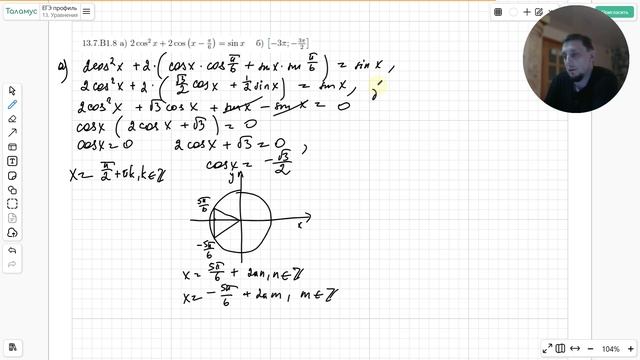 Таламус
ЕГЭ профиль
13. Уравнения
Пригласить
13.7.В1.8 а) 2 cos² x + 2 cos (x − π/6) = sin x б) [−3π; −3π/2]
а) 2cos²x + 2·(cosx·cos π/6 + sinx·sin π/6) = sin x,
2cos²x + 2·(√3/2 cosx + 1/2 sinx) = sinx,
2cos²x + √3 cosx + sinx − sinx = 0
cosx (2cosx + √3) = 0
cosx = 0 2cosx + √3 = 0,
x = π/2 + πk, k∈ℤ cosx = −√3/2
y
5π/6
x
−5π/6
x = 5π/6 + 2πn, n∈ℤ
x = −5π/6 + 2πm, m∈ℤ
104%